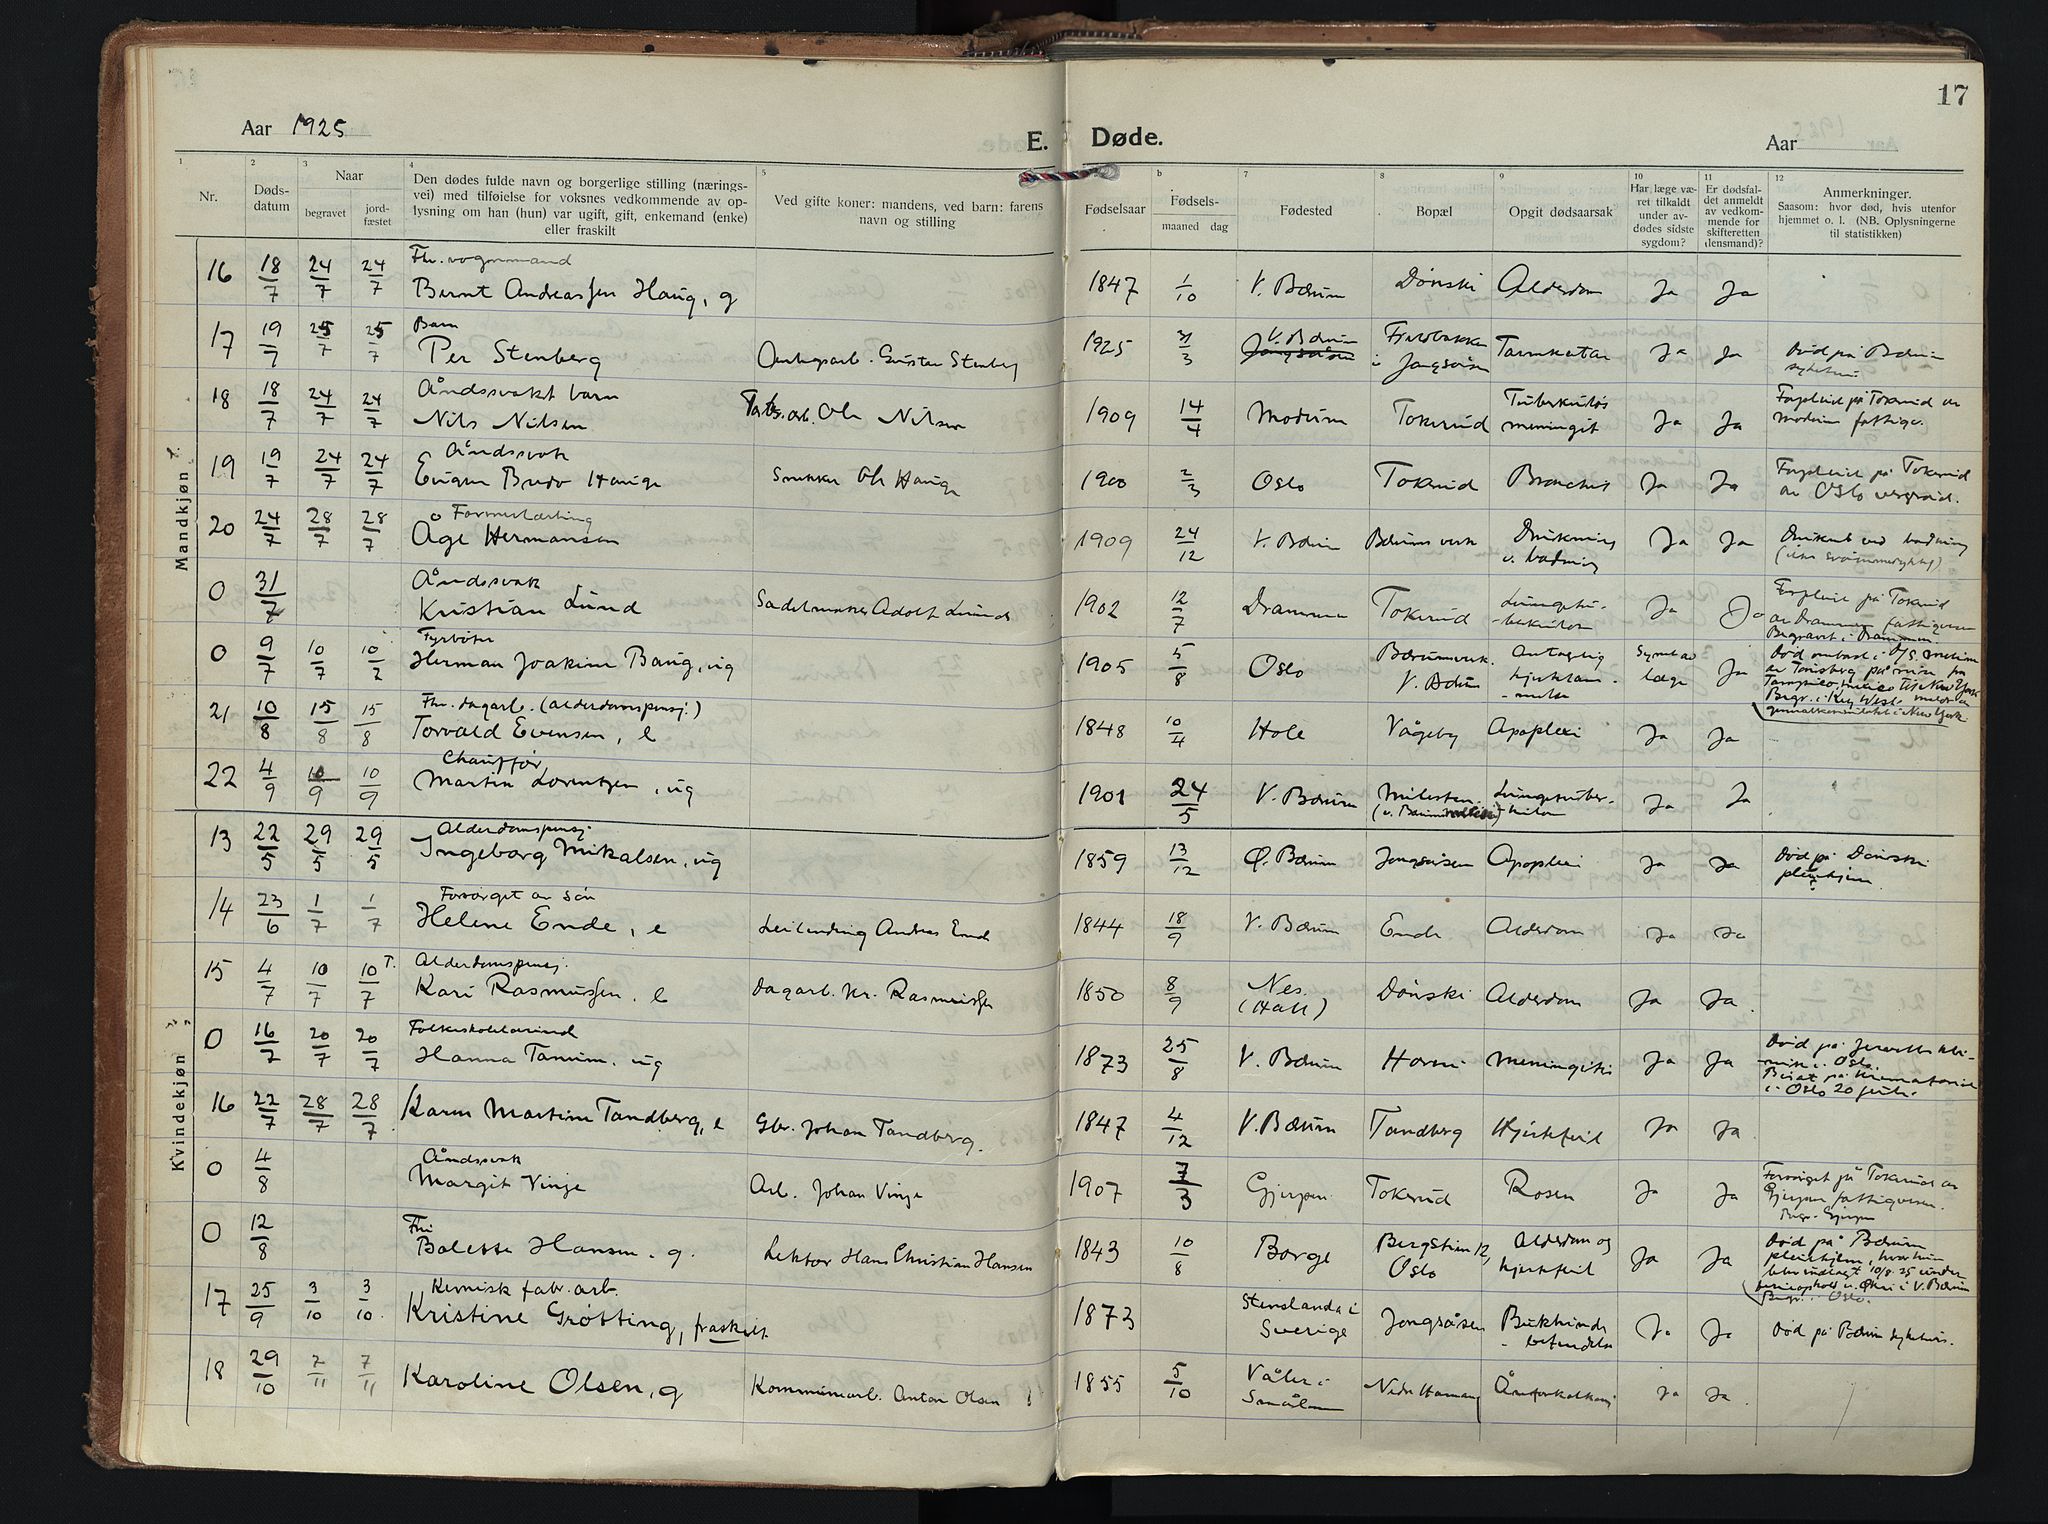 17
Aar 1925
E. Døde.
Aar
1 2 3 4 5 b 7 8 9 10 11 12
Nr.
Døds-
datum
Naar
begravet
jord-
fæstet
Den dødes fulde navn og borgerlige stilling (nærings-
vei) med tilføielse for voksnes vedkommende av op-
lysning om han (hun) var ugift, gift, enkemand (enke)
eller fraskilt
Ved gifte koner: mandens, ved barn: farens
navn og stilling
Fødselsaar
Fødsels-
maaned dag
Fødested
Bopæl
Opgit dødsaarsak
Har læge væ-
ret tilkaldt
under av-
dødes sidste
sygdom?
Er dødsfal-
det anmeldt
av vedkom-
mende for
skifteretten
(lensmand)?
Anmerkninger.
Saasom: hvor død, hvis utenfor
hjemmet o. l. (NB. Oplysningerne
til statistikken)
Mandkjøn
Fhv. vognmand
16 18/7 24/7 24/7 Bernt Andreassen Haug, g 1847 1/10 V. Bærum Dønski Alderdom Ja Ja
Barn
17 19/7 25/7 25/7 Per Stenberg Gustav Stenberg 1925 31/3 V. Bærum Jongsåsen
i Jongsåsen Tarmkatar Ja Ja Død på Bærum
sykehus
Åndssvakt barn
18 18/7 24/7 24/7 Nils Nilsen Ole Nilsen 1909 14/4 Modum Tokerud Tuberkuløs
meningit Ja Ja Forpleiet på Tokerud av
Modum fattigv.
Åndssvak
19 19/7 24/7 24/7 Eugen Bredo Hauge Snekker Ole Hauge 1900 2/3 Oslo Tokerud Bronchit Ja Ja Forpleiet på Tokerud
av Oslo vergeråd.
Formerlærling
20 24/7 28/7 28/7 Åge Hermansen 1909 24/12 V. Bærum Bærums verk Drukning
v. badning Ja Ja Druknet ved badning
(ikke svømmedyktig).
Åndssvak
0 31/7 Kristian Lund Sadelmaker Adolf Lund 1902 12/7 Drammen Tokerud Lungetu-
-berkulose Ja Ja Forpleiet på Tokerud
av Drammens fattigvesen
Begravet i Drammen.
Fyrbøter
0 9/7 10/7 10/7 Herman Joakim Baug, ug 1905 5/8 Oslo Bærumsverk.
V. Bærum Antagelig
hjertelam-
-melse Synt av
læge Ja Død ombord i D/S
av Tønsberg på reise fra
Tampico, Mexico til New York
Begr. i Key West.
generalkonsulatet i New York
Fhv. dagarb. (alderdomspensj.)
21 10/8 15/8 15/8 Torvald Evensen, e 1848 10/4 Hole Vågeby Apoplexi Ja Ja
Chauffør
22 4/9 10/9 10/9 Martin Lorentzen, ug 1901 24/5 V. Bærum Lungetuber-
kulose Ja Ja
Kvindekjøn
Alderdomspensj
13 22/5 29/5 29/5 Ingeborg Mikalsen, ug 1859 13/12 Ø. Bærum Jongsåsen Apoplexi Ja Ja Død på Dønski
pleiehjem.
Forsørget av søn
14 23/6 1/7 1/7 Helene Ende, e Leilending Andreas Ende 1844 18/9 V. Bærum Ende Alderdom Ja Ja
Alderdomspensj.
15 4/7 10/7 10/7 T. Kari Rasmussen, e Dagarb. Kr. Rasmussen 1850 8/9 Nes
(Hall) Dønski Alderdom Ja Ja.
Folkeskolelærerinde
0 16/7 20/7 20/7 Hanna Tanum, ug 1873 25/8 V. Bærum Horni Meningitis Ja Ja Død på kli-
-nikk i Oslo.
Bisat på krematoriet
i Oslo 20 juli.
16 22/7 28/7 28/7 Karen Martine Tandberg, e Gbr. Johan Tandberg. 1847 4/12 V. Bærum Tandberg Hjertefeil Ja Ja
Åndssvak
0 4/8 Margit Vinje Arb. Johan Vinje 1907 7/3 Gjerpen Tokerud Rosen Ja Ja Forsørget på Tokerud av
Gjerpen fattigvesen.
Begr. Gjerpen
Fru
0 12/8 Bolette Hansen, g. Lektor Hans Christian Hansen 1843 10/8 Borge Bergstien 12,
Oslo Alderdom og
hjertefeil Ja Ja Død på Bærum
pleiehjem, hvor hun
blev indlagt 10/8 25 under
ferieophold i V. Bærum
Begr. i Oslo.
Kemisk fabr. arb.
17 25/9 3/10 3/10. Kristine Grøtting, fraskilt 1873 Stenslanda i
Sverige Jongsåsen Bukhinde-
betændelse Ja Ja Død på Bærum sykehus.
18 29/10 7/11 7/11 Karoline Olsen, g Kommunearb. Anton Olsen 1855 5/10 Våler i
Smålenene Nedre Hamang Åreforkalkning Ja Ja.